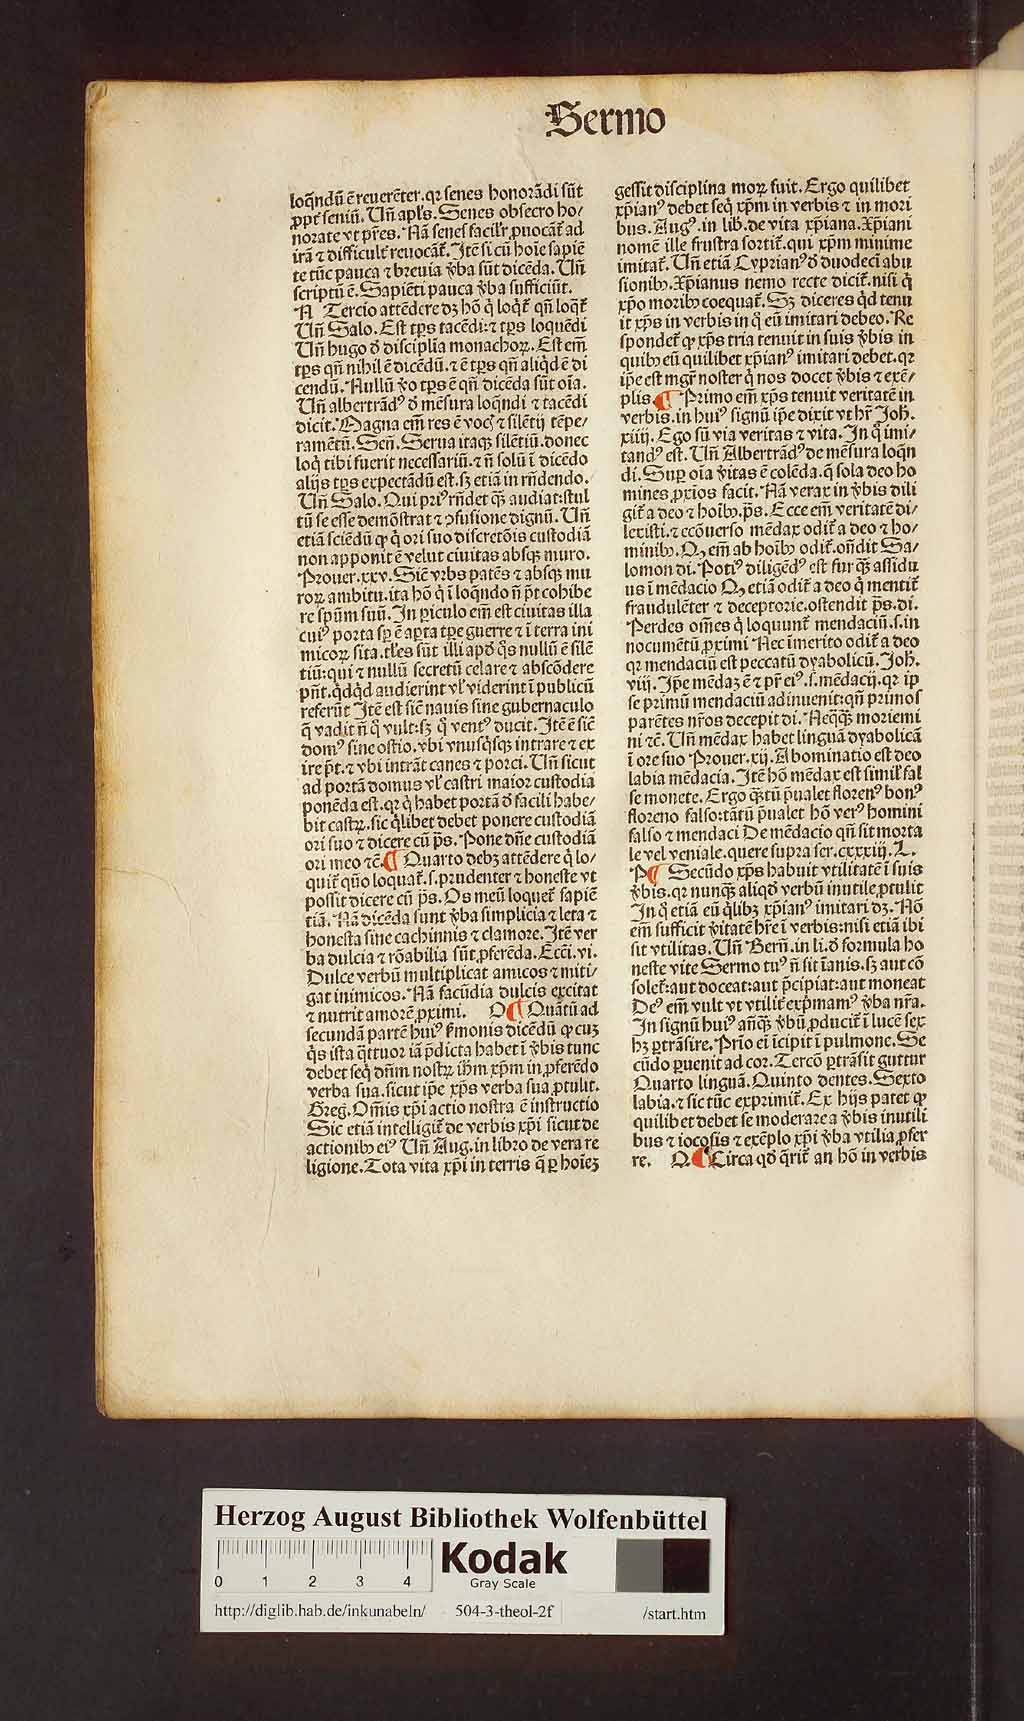 Sermo
loq̄ndū ē reuerēter. qꝛ senes honorādi sūt
ꝓpt̄ seniū. Vn̄ apl's. Senes obsecro ho⸗
norate vt pr̄es. Nā senes facilr̄ ꝓuocāt̄ ad
irā ⁊ difficult̄ reuocāt̄. Itē si cū hoīe sapiē
te tūc pauca ⁊ breuia v̄ba sūt dicēda. Vn̄
scriptū ē. Sapiēti pauca v̄ba sufficiūt.
N Tercio attēdere dꝫ hō q̇ loqt̄ qn̄ loqt̄
Vn̄ Salo. Est tp̄s tacēdi: ⁊ tp̄s loquēdi
Vn̄ hugo ď disciplīa monachoꝝ. Est em̄
tp̄s qn̄ nihil ē dicēdū. ⁊ ē tp̄s qn̄ aliqd̄ ē di
cendū. Nullū v̄o tp̄s ē qn̄ dicēda sūt oīa.
Vn̄ albertrād⁹ ď mēsura loq̄ndi ⁊ tacēdi
dicit. Magna em̄ res ē voc̄ ⁊ silētij tēpe⸗
ramētū. Sen̄. Serua itaqꝫ silētiū. donec
loq̇ tibi fuerit necessariū. ⁊ n̄ solū ī dicēdo
alijs tp̄s expectādū est. sꝫ etiā in rn̄dendo.
Vn̄ Salo. Qui pri⁹ rn̄det qꝫ audiat: stul
tū se esse demōstrat ⁊ ꝯfusione dignū. Vn̄
etiā sciēdū ꝙ q̇ ori suo discretōis custodiā
non apponit ē velut ciuitas absqꝫ muro.
Prouer. xxv. Sic̄ vrbs patēs ⁊ absqꝫ mu
roꝝ ambitu. ita hō q̇ ī loq̄ndo n̄ pt̄ cohibe
re spūm suū. In ꝑiculo em̄ est ciuitas illa
cui⁹ porta sꝑ ē aꝑta tꝑe guerre ⁊ ī terra ini
micoꝝ sita. tl̄es sūt illi apď qs̄ nullū ē silē
tiū: qui ⁊ nullū secretū celare ⁊ abscōdere
pn̄t. qd̄qd̄ audierint vl' viderint ī publicū
referūt Itē est sic̄ nauis sine gubernaculo
q̄ vadit n̄ q̇ vult: sꝫ q̇ vent⁹ ducit. Itē ē sic̄
dom⁹ sine ostio. vbi vnusq̇sqꝫ intrare ⁊ ex
ire pt̄. ⁊ vbi intrāt canes ⁊ porci. Vn̄ sicut
ad portā domus vl' castri maior custodia
ponēda est. qꝛ q̇ habet portā ď facili habe⸗
bit castꝝ. sic q̇libet debet ponere custodiā
ori suo ⁊ dicere cū ps̄. Pone dn̄e custodiā
ori meo ⁊c̄. ¶ Quarto debꝫ attēdere q̇ lo⸗
quit̄ quō loquat̄. s. prudenter ⁊ honeste vt
possit dicere cū ps̄. Os meū loquet̄ sapiē
tiā. Nā dicēda sunt v̄ba simplicia ⁊ leta ⁊
honesta sine cachinnis ⁊ clamore. Itē ver
ba dulcia ⁊ rōabilia sūt ꝓferēda. Ecci. vi.
Dulce verbū multiplicat amicos ⁊ miti⸗
gat inimicos. Nā facūdia dulcis excitat
⁊ nutrit amorē ꝓximi. O ¶ Quātū ad
secundā partē hui⁹ s̄monis dicēdū ꝙ cuꝫ
q̇s ista qttuor iā p̄dicta habet ī v̄bis tunc
debet seq̇ dn̄m nostꝝ ihm̄ xp̄m in ꝓferēdo
verba sua. sicut ip̄e xp̄s verba sua ꝓtulit.
Greg. Om̄is xp̄i actio nostra ē instructio
Sic etiā intelligit̄ de verbis xp̄i sicut de
actionibꝫ ei⁹ Vn̄ Aug. in libro de vera re
ligione. Tota vita xp̄i in terris q̄ ꝑ hoīeꝫ
gessit disciplina moꝝ fuit. Ergo quilibet
xp̄ian⁹ debet seq̇ xp̄m in verbis ⁊ in mori
bus. Aug⁹. in lib̄. de vita xp̄iana. Xp̄iani
nomē ille frustra sortit̄. qui xp̄m minime
imitat̄. Vn̄ etiā Cyprian⁹ ď duodecī abu
sionibꝫ. Xp̄ianus nemo recte dicit̄. nisi q̇
xp̄o moribꝫ coequat̄. Sꝫ diceres qd̄ tenu
it xp̄s in verbis in q̇ eū imitari debeo. Re
spondet̄ ꝙ xp̄s tria tenuit in suis v̄bis in
quibꝫ eū quilibet xp̄ian⁹ imitari debet. qꝛ
ip̄e est mgr̄ noster q̇ nos docet v̄bis ⁊ exē⸗
plis. ¶ Primo em̄ xp̄s tenuit veritatē in
verbis. in hui⁹ signū ip̄e dixit vt hr̄ Joh̄.
xiiij. Ego sū via veritas ⁊ vita. In q̇ imi⸗
tand⁹ est. Vn̄ Albertrād⁹ de mēsura loq̄n
di. Suꝑ oīa v̄itas ē colēda. q̄ sola deo ho
mines ꝓxīos facit. Nā verax in v̄bis dili
git̄ a deo ⁊ hoībꝫ. ps̄. Ecce em̄ veritatē di⸗
lexisti. ⁊ ecōuerso mēdax odit̄ a deo ⁊ ho⸗
minibꝫ. Qꝫ em̄ ab hoībꝫ odit̄. on̄dit Sa⸗
lomon di. Poti⁹ diligēd⁹ est fur qꝫ assidu
us ī mēdacio Qꝫ etiā odit̄ a deo q̇ mentit̄
fraudulēter ⁊ deceptorie. ostendit ps̄. di.
Perdes om̄es q̇ loquunt̄ mendaciū. s. in
nocumētū ꝓximi Nec īmerito odit̄ a deo
qꝛ mendaciū est peccatū dyabolicū. Joh̄.
viij. Ip̄e mēdaꝫ ē ⁊ pr̄ ei⁹. s. mēdacij. qꝛ ip
se primū mendaciū adinuenit: qn̄ primos
parētes nr̄os decepit di. Neqꝫqꝫ moriemi
ni ⁊c̄. Vn̄ mēdax habet linguā dyabolicā
ī ore suo Prouer. xij. Abominatio est deo
labia mēdacia. Itē hō mēdax est simil' fal
se monete. Ergo qꝫtū p̄ualet floren⁹ bon⁹
floreno falso: tātū p̄ualet hō ver⁹ homini
falso ⁊ mendaci De mēdacio qn̄ sit morta
le vel veniale. quere supra ser. cxxxiij. L.
P ¶ Secūdo xp̄s habuit vtilitatē ī suis
v̄bis. qꝛ nunqꝫ aliqď verbū inutile ꝓtulit
In q̇ etiā eū q̇libꝫ xp̄ian⁹ imitari dꝫ. Nō
em̄ sufficit v̄itatē hr̄e ī verbis: nisi etiā ibi
sit vtilitas. Vn̄ Bern̄. in li. ď formula ho
neste vite Sermo tu⁹ n̄ sit īanis. sꝫ aut cō
solet̄: aut doceat: aut p̄cipiat: aut moneat
De⁹ em̄ vult vt vtilit̄ exp̄mam⁹ v̄ba nr̄a.
In signū hui⁹ an̄qꝫ v̄bū ꝓducit̄ ī lucē sex
hꝫ ꝑtrāsire. Prīo ei īcipit ī pulmone. Se
cūdo ꝑuenit ad cor. Tercō ꝑtrāsit guttur
Quarto linguā. Quinto dentes. Sexto
labia. ⁊ sic tūc exprimit̄. Ex hijs patet ꝙ
quilibet debet se moderare a v̄bis inutili
bus ⁊ iocosis ⁊ exēplo xp̄i v̄ba vtilia ꝓfer
re. Q. ¶ Circa qď q̄rit̄ an hō in verbis
Herzog August Bibliothek Wolfenbüttel
0 1 2 3 4
Kodak
Gray Scale
http://diglib.hab.de/inkunabeln/ 504-3-theol-2f /start.htm